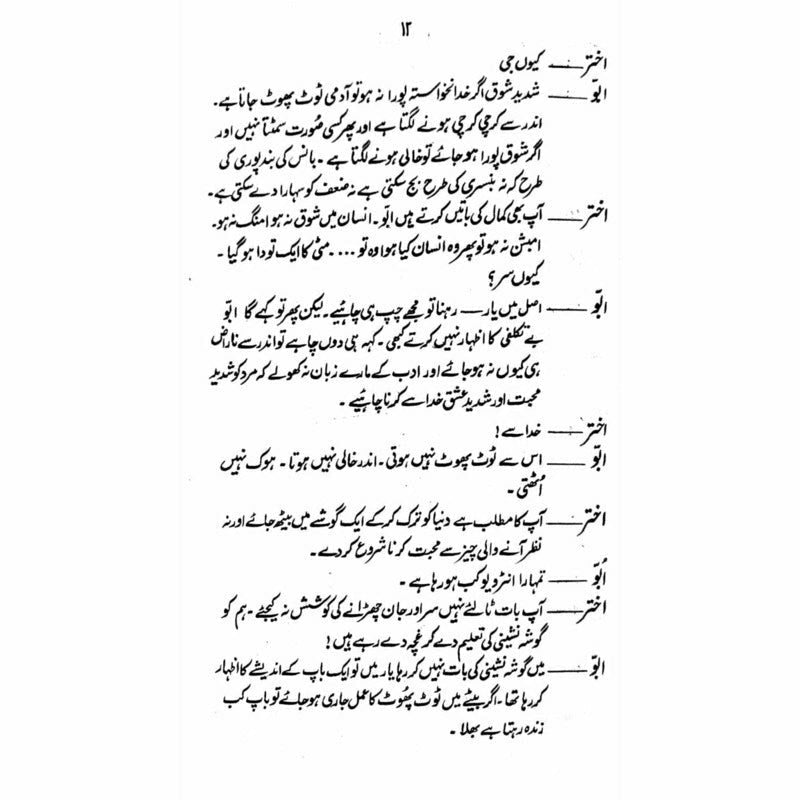 ۱۲
اختر ــــ کیوں جی
ابّو ــــ شدید شوق اگر خدانخواستہ پورا نہ ہو تو آدمی ٹوٹ پھوٹ جاتا ہے۔
اندر سے کرچی کرچی ہونے لگتا ہے اور پھر کسی صُورت سمٹتا نہیں اور
اگر شوق پورا ہو جائے تو خالی ہونے لگتا ہے۔ بانس کی بند پوری کی
طرح کہ نہ بنسری کی طرح بج سکتی ہے نہ ضعف کو سہارا دے سکتی ہے۔
اختر ــــ آپ بھی کمال کی باتیں کرتے ہیں ابّو۔ انسان میں شوق نہ ہو امنگ نہ ہو۔
امبشن نہ ہو تو پھر وہ انسان کیا ہوا وہ تو .... مٹی کا ایک تودا ہو گیا۔
کیوں سر؟
ابّو ــــ اصل میں یار ــــ رہنا تو مجھے چپ ہی چاہئیے۔ لیکن پھر تو کہے گا ابو
بے تکلفی کا اظہار نہیں کرتے کبھی۔ کہہ ہی دوں چاہے تو اندر سے ناراض
ہی کیوں نہ ہو جائے اور ادب کے مارے زبان نہ کھولے کہ مرد کو شدید
محبت اور شدید عشق خدا سے کرنا چاہئیے۔
اختر ــــ خدا سے!
ابّو ــــ اس سے ٹوٹ پھوٹ نہیں ہوتی۔ اندر خالی نہیں ہوتا۔ ہوک نہیں
اُٹھتی۔
اختر ــــ آپ کا مطلب ہے دنیا کو ترک کر کے ایک گوشے میں بیٹھ جائے اور نہ
نظر آنے والی چیز سے محبت کرنا شروع کر دے۔
ابُّو ــــ تمہارا انٹرویو کب ہو رہا ہے۔
اختر ــــ آپ بات ٹالئے نہیں سر اور جان چھڑانے کی کوشش نہ کیجئے۔ ہم کو
گوشہ نشینی کی تعلیم دے کر غچہ دے رہے ہیں!
ابّو ــــ میں گوشہ نشینی کی بات نہیں کر رہا یار میں تو ایک باپ کے اندیشے کا اظہار
کر رہا تھا۔ اگر بیٹے میں ٹوٹ پھُوٹ کا عمل جاری ہو جائے تو باپ کب
زندہ رہتا ہے بھلا۔